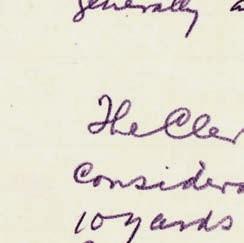 generally a
The Cler
considera
10 yards